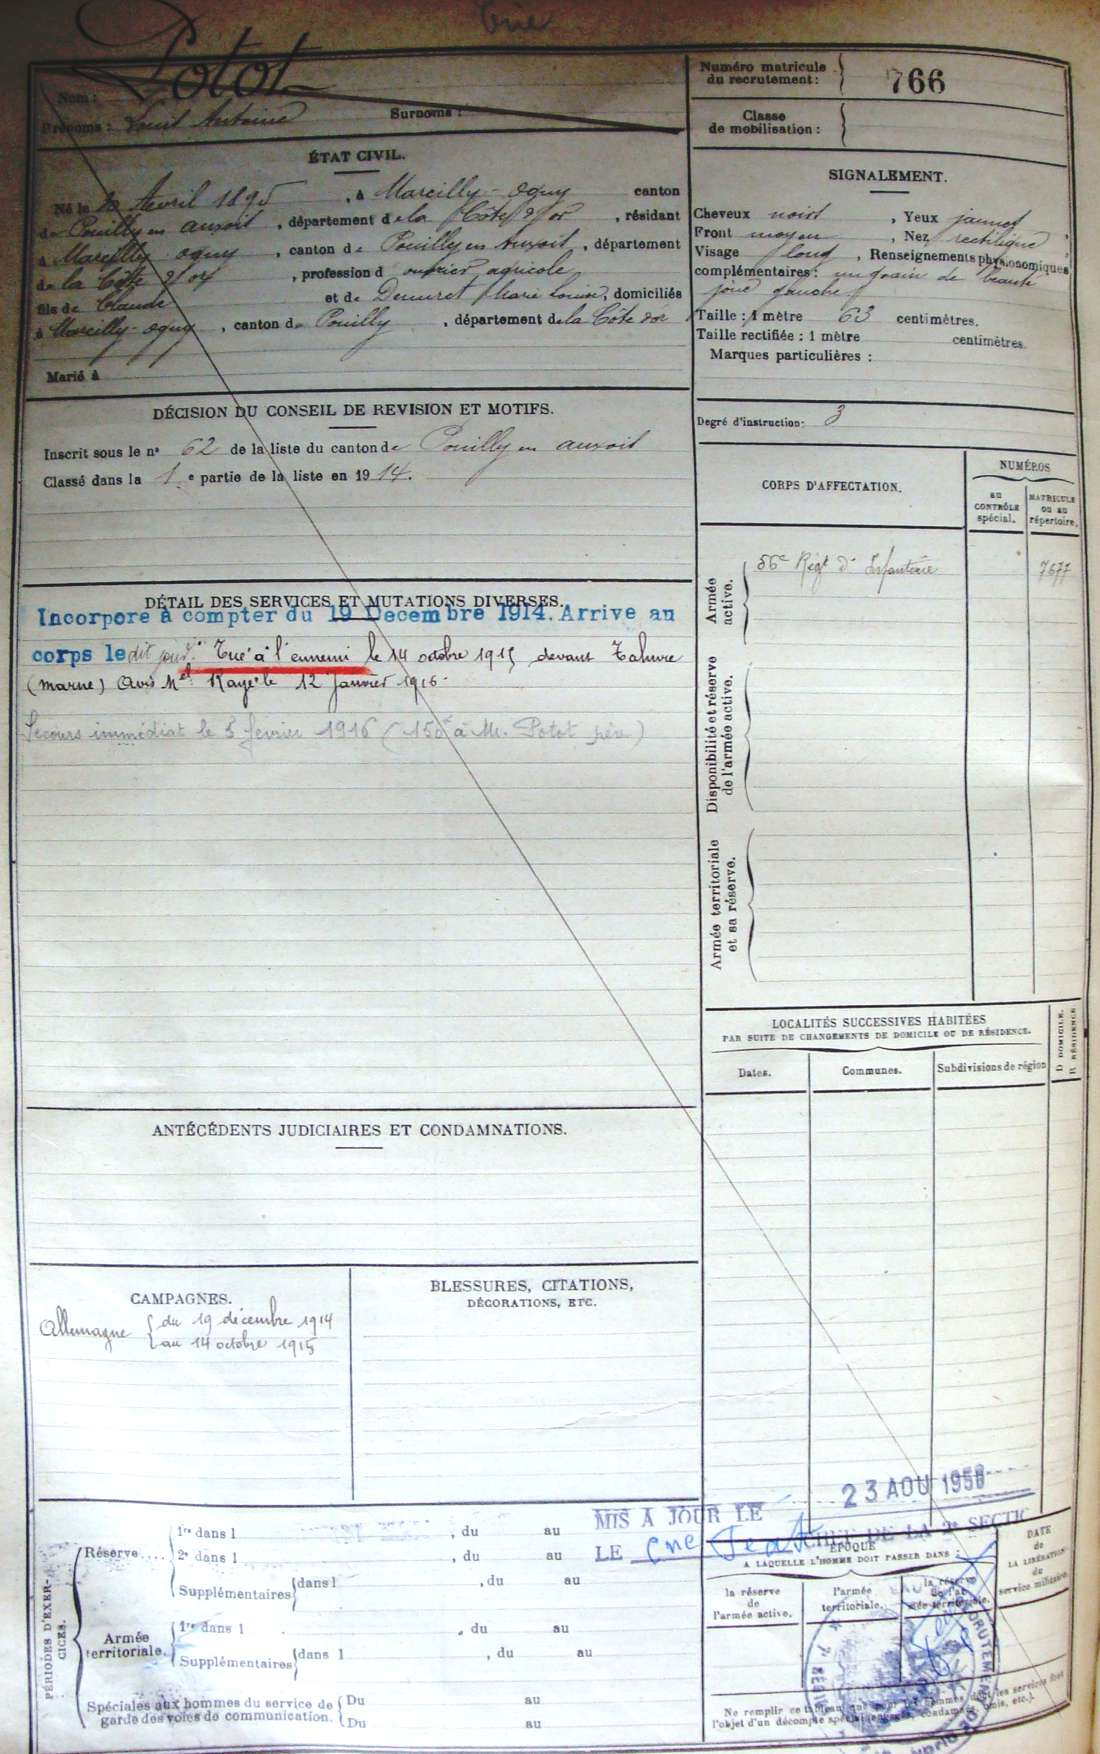 Tué
Potot
Nom :
Prénoms : Louis Antoine Surnoms :
Numéro matricule du recrutement : 766
Classe de mobilisation :
ÉTAT CIVIL.
Né le 10 Avril 1895, à Marcilly-Ogny canton
de Pouilly en auxois, département de la Côte d'or, résidant
à Marcilly ogny, canton de Pouilly en Auxois, département
de la Côte d'or, profession d'ouvrier agricole
fils de Claude et de Demurot Marie Louise, domiciliés
à Marcilly-ogny, canton de Pouilly, département de la Côte d'or
Marié à
SIGNALEMENT.
Cheveux noirs, Yeux jaunes,
Front moyen, Nez rectiligne
Visage long, Renseignements physionomiques
complémentaires : un grain de beauté
joue gauche
Taille : 1 mètre 63 centimètres.
Taille rectifiée : 1 mètre centimètres.
Marques particulières :
DÉCISION DU CONSEIL DE REVISION ET MOTIFS.
Inscrit sous le n° 62 de la liste du canton de Pouilly en auxois
Classé dans la 1e partie de la liste en 1914.
Degré d'instruction : 3
CORPS D'AFFECTATION.
NUMÉROS
au CONTRÔLE spécial.
MATRICULE ou au répertoire.
Armée active.
56e Régt d'Infanterie 7677
Disponibilité et réserve de l'armée active.
Armée territoriale et sa réserve.
DÉTAIL DES SERVICES ET MUTATIONS DIVERSES.
Incorporé à compter du 19 Decembre 1914. Arrive au
corps le dit jour. Tué à l'ennemi le 14 octobre 1915 devant Tahure
(Marne) Avis Mel Rayé le 12 Janvier 1916.
Secours immédiat le 5 février 1916 (150f à M. Potot père)
LOCALITÉS SUCCESSIVES HABITÉES
PAR SUITE DE CHANGEMENTS DE DOMICILE OU DE RÉSIDENCE.
Dates. Communes. Subdivisions de région
D DOMICILE.
R RÉSIDENCE
ANTÉCÉDENTS JUDICIAIRES ET CONDAMNATIONS.
CAMPAGNES.
Allemagne { du 19 décembre 1914
{ au 14 octobre 1915
BLESSURES, CITATIONS,
DÉCORATIONS, ETC.
23 AOU 1950
MIS A JOUR LE
LE Cne CHEF DE LA 2e SECTI
PÉRIODES D'EXERCICES.
Réserve....
1re dans l , du au
2e dans l , du au
Supplémentaires { dans l , du au
Armée territoriale.
1re dans l , du au
Supplémentaires { dans l , du au
Spéciales aux hommes du service de garde des voies de communication. { Du au
{ Du au
ÉPOQUE
A LAQUELLE L'HOMME DOIT PASSER DANS :
la réserve de l'armée active.
l'armée territoriale.
la réserve de l'armée territoriale.
DATE de LA LIBÉRATION du service militaire.
Ne remplir ce tableau que pour les hommes dont les services font
l'objet d'un décompte spécial (engagés, condamnés, omis, etc.).